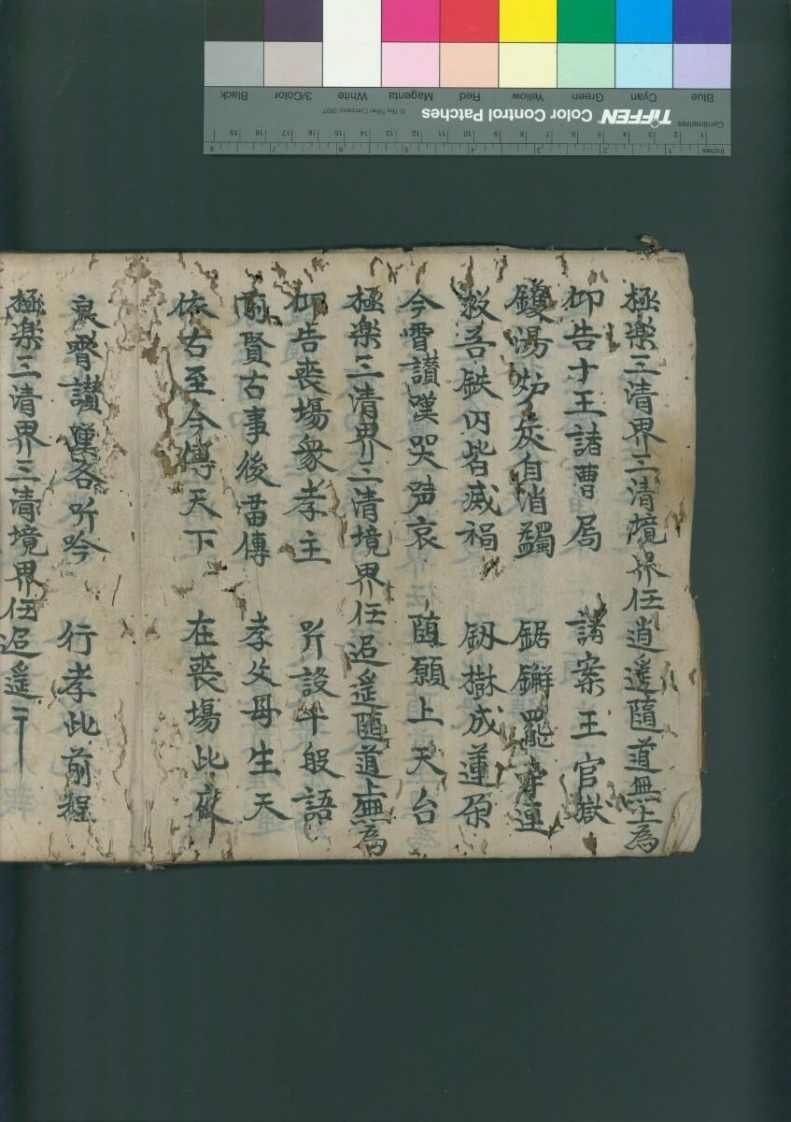 極楽三清界三清境界任逍遥隨道無上為
仰告十王諸曹局 諸案王官獄
鑊湯炉灰自消蠲 鋸鐦罷 連
救苦鉄囚皆滅禍 釼樹成蓮原
今霄讃嘆哭声哀 隨願上天台
極楽三清界三清境界任逍遥隨道上無為
仰告喪場衆孝主 斉設千般語
前賢古事後畱傳 孝父母生天
依古至今傳天下 在喪場此
哀霄讃嘆各听吟 行孝此前程
極楽三清界三清境界任逍遥二
Blue
Cyan
Green
Yellow
Red
Magenta
White
3/Color
Black
Centimetres
TIFFEN Color Control Patches
© The Tiffen Company, 2007
1 2 3 4 5 6 7 8 9 10 11 12 13 14 15 16 17 18 19
Inches 1 2 3 4 5 6 7 8